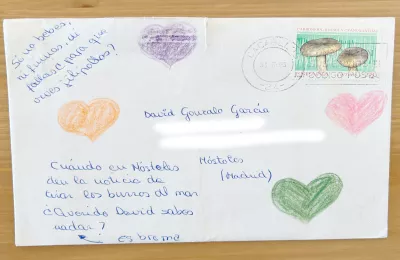 Si no bebes,
ni fumas, ni
follas ¿ para que
vives gilipollas?
David Gonzalo García
Móstoles
(Madrid)
Cuándo en Móstoles
den la noticia de
tirar los burros al mar
¿ Querido David sabes
nadar ?
es broma